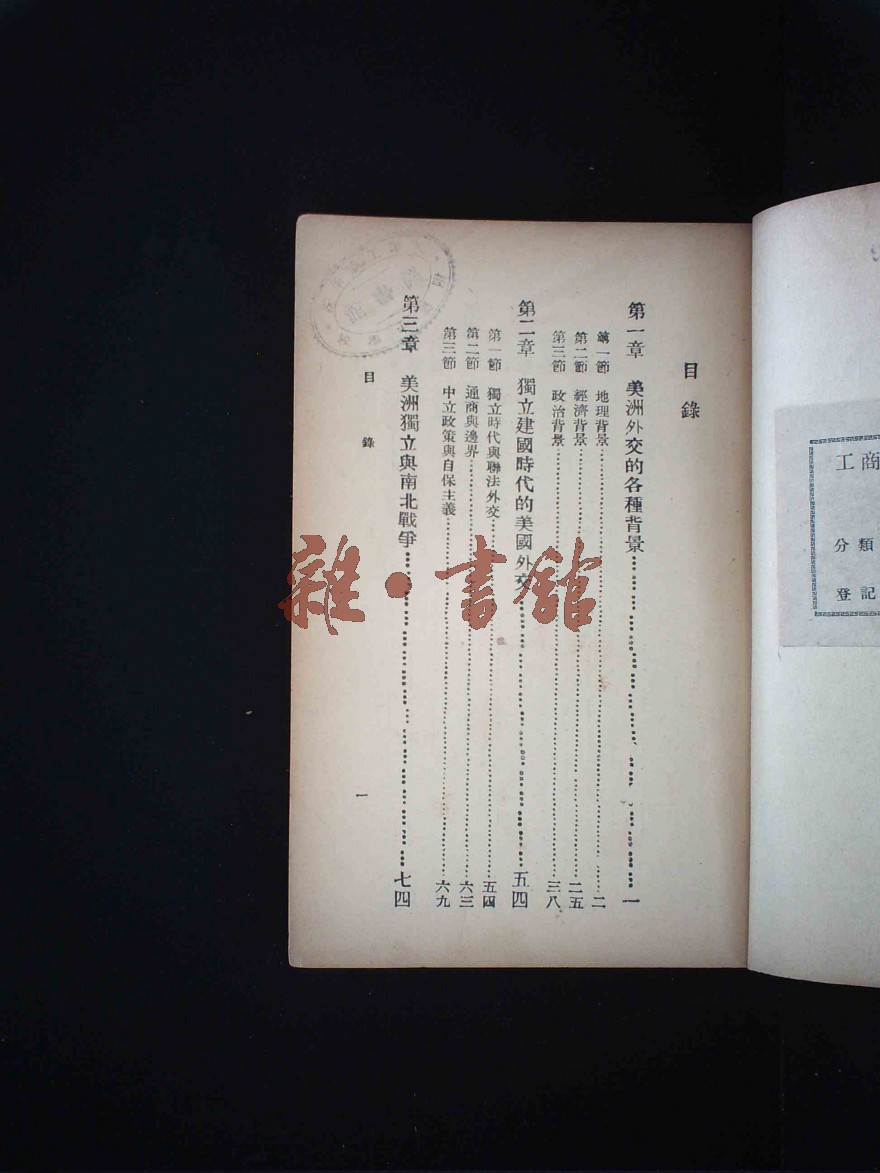 目錄
第一章 美洲外交的各種背景……一
第一節 地理背景……二
第二節 經濟背景……二五
第三節 政治背景……三八
第二章 獨立建國時代的美國外交……五四
第一節 獨立時代與聯法外交……五四
第二節 通商與邊界……六三
第三節 中立政策與自保主義……六九
第三章 美洲獨立與南北戰爭……七四
目錄
一
工商
分類
登記
雜·書館